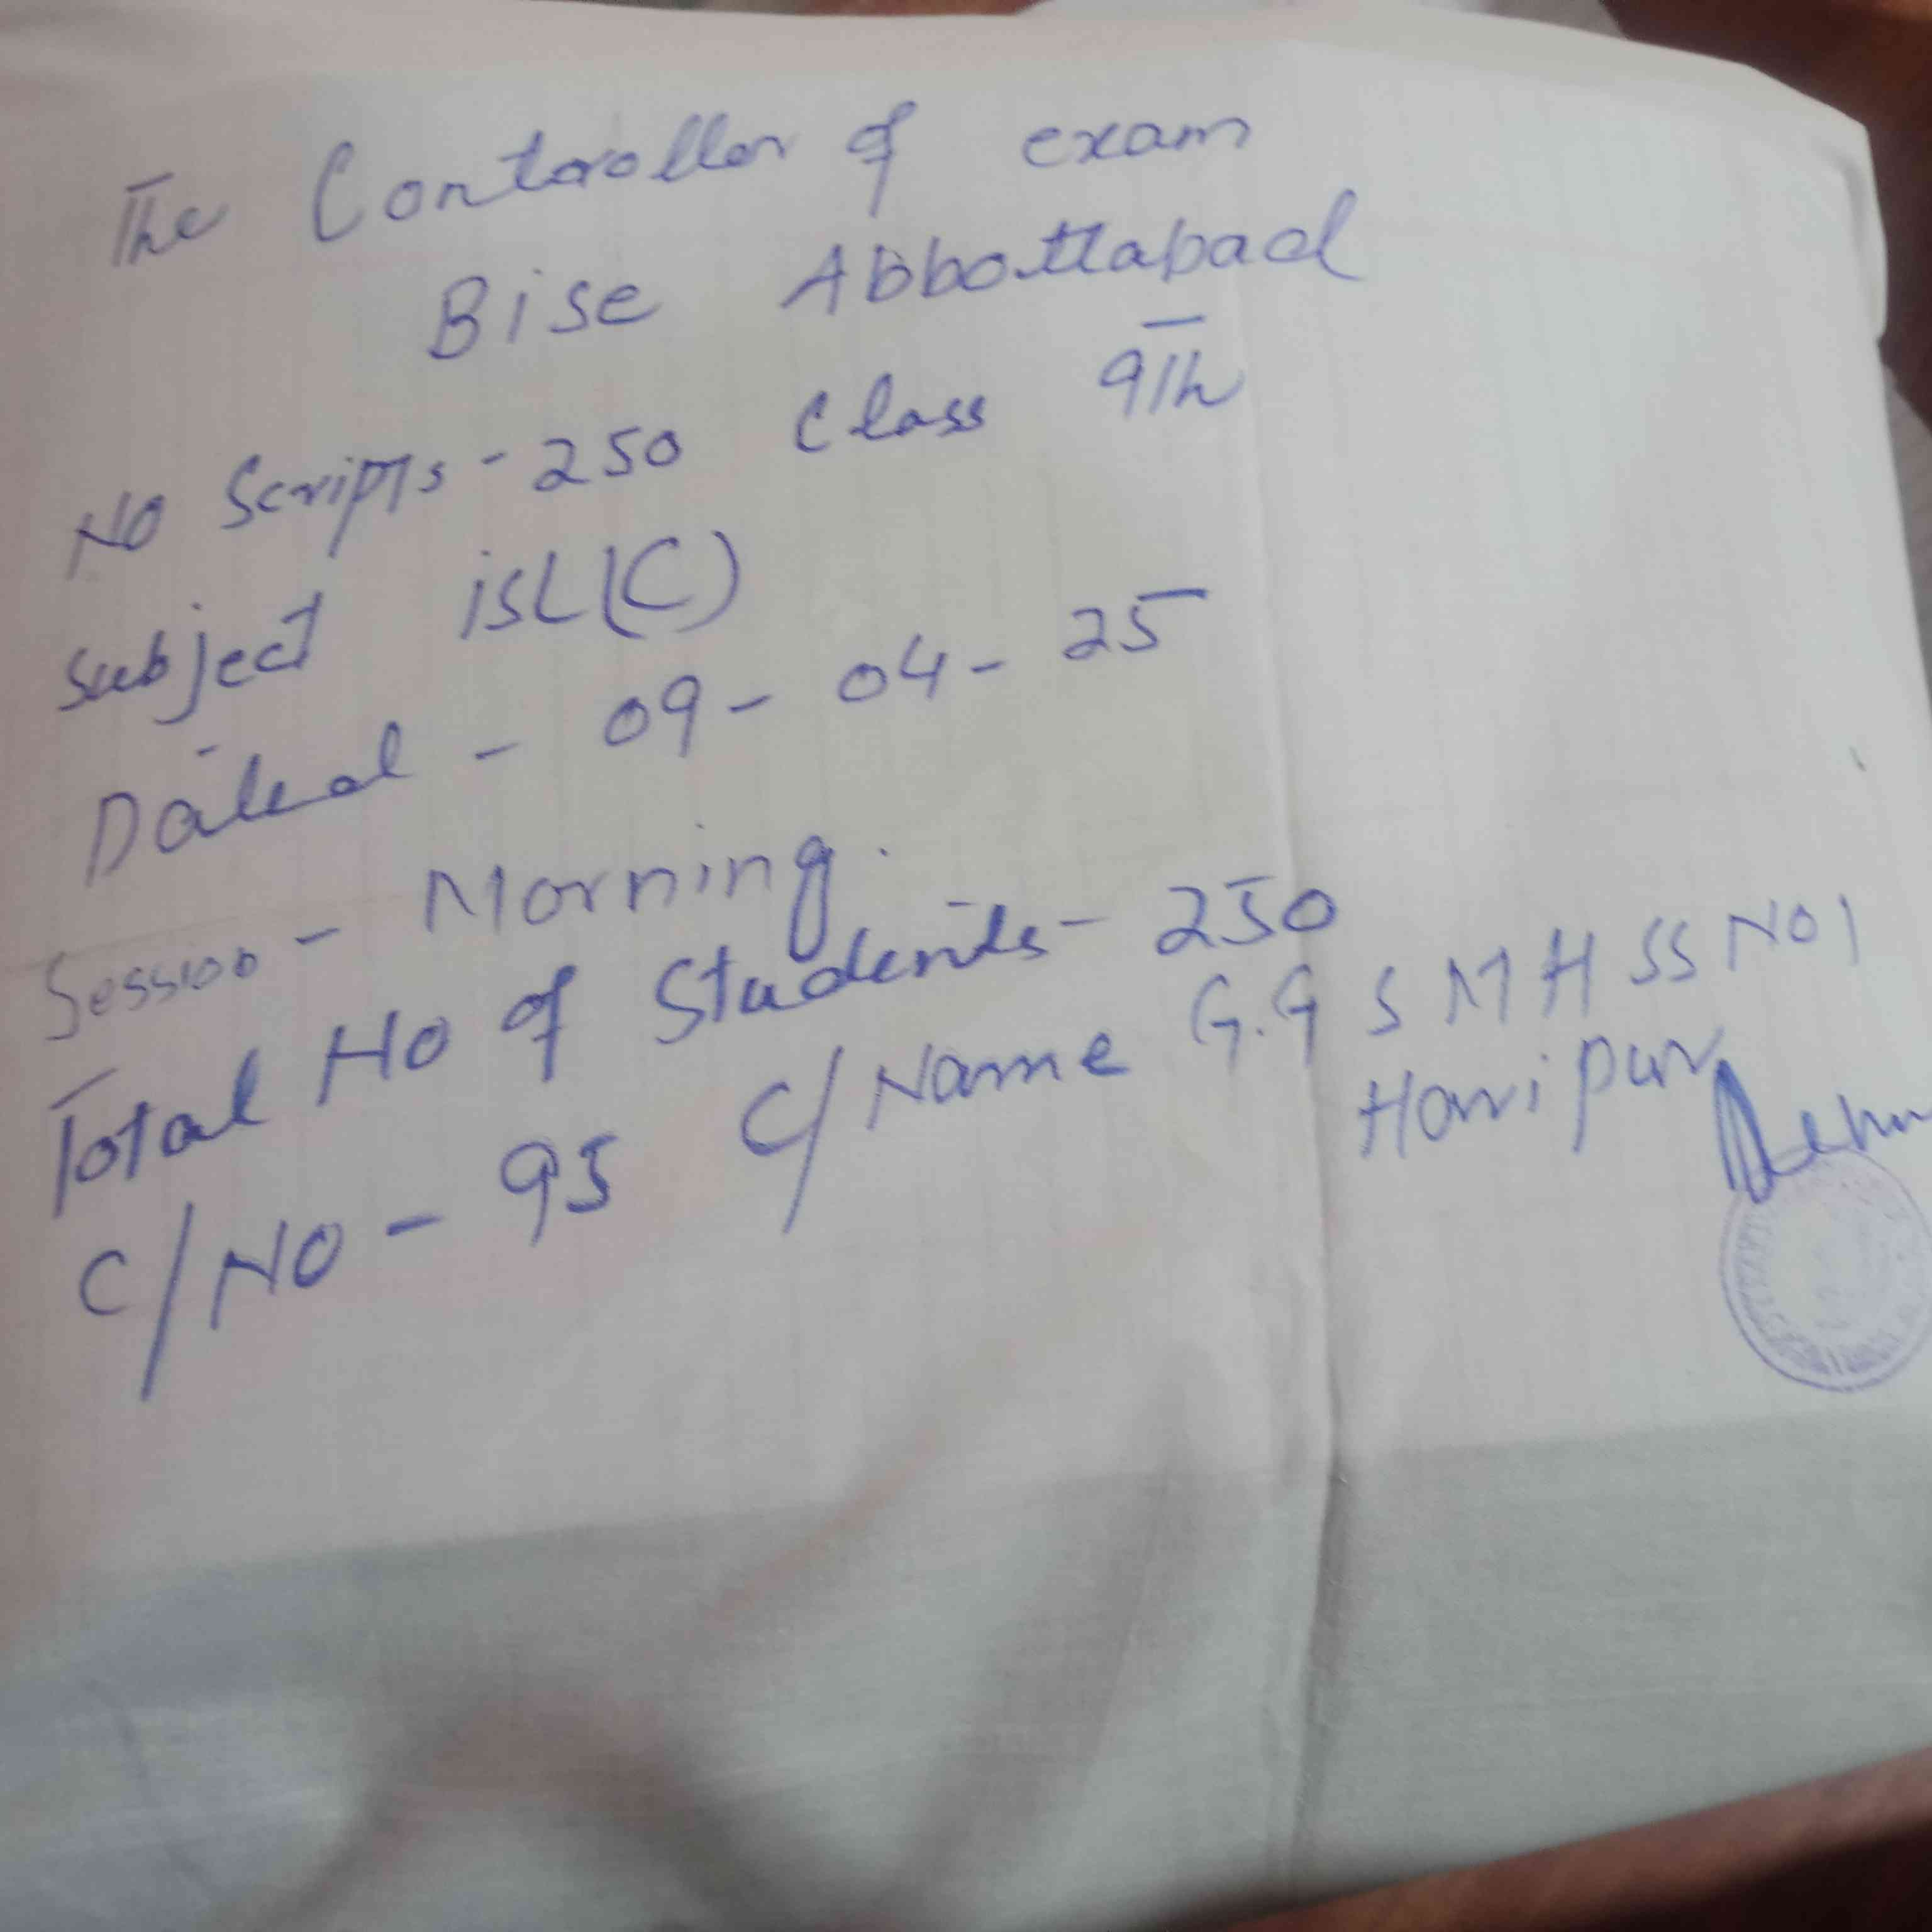 The Controller of exam
Bise Abbottabad
No Scripts - 250 Class 9Th
Subject isL(C)
Dated - 09 - 04 - 25
Session - Morning.
Total No of Students - 250
C/NO - 95 C/Name G.G S M H SS NO1
Haripur